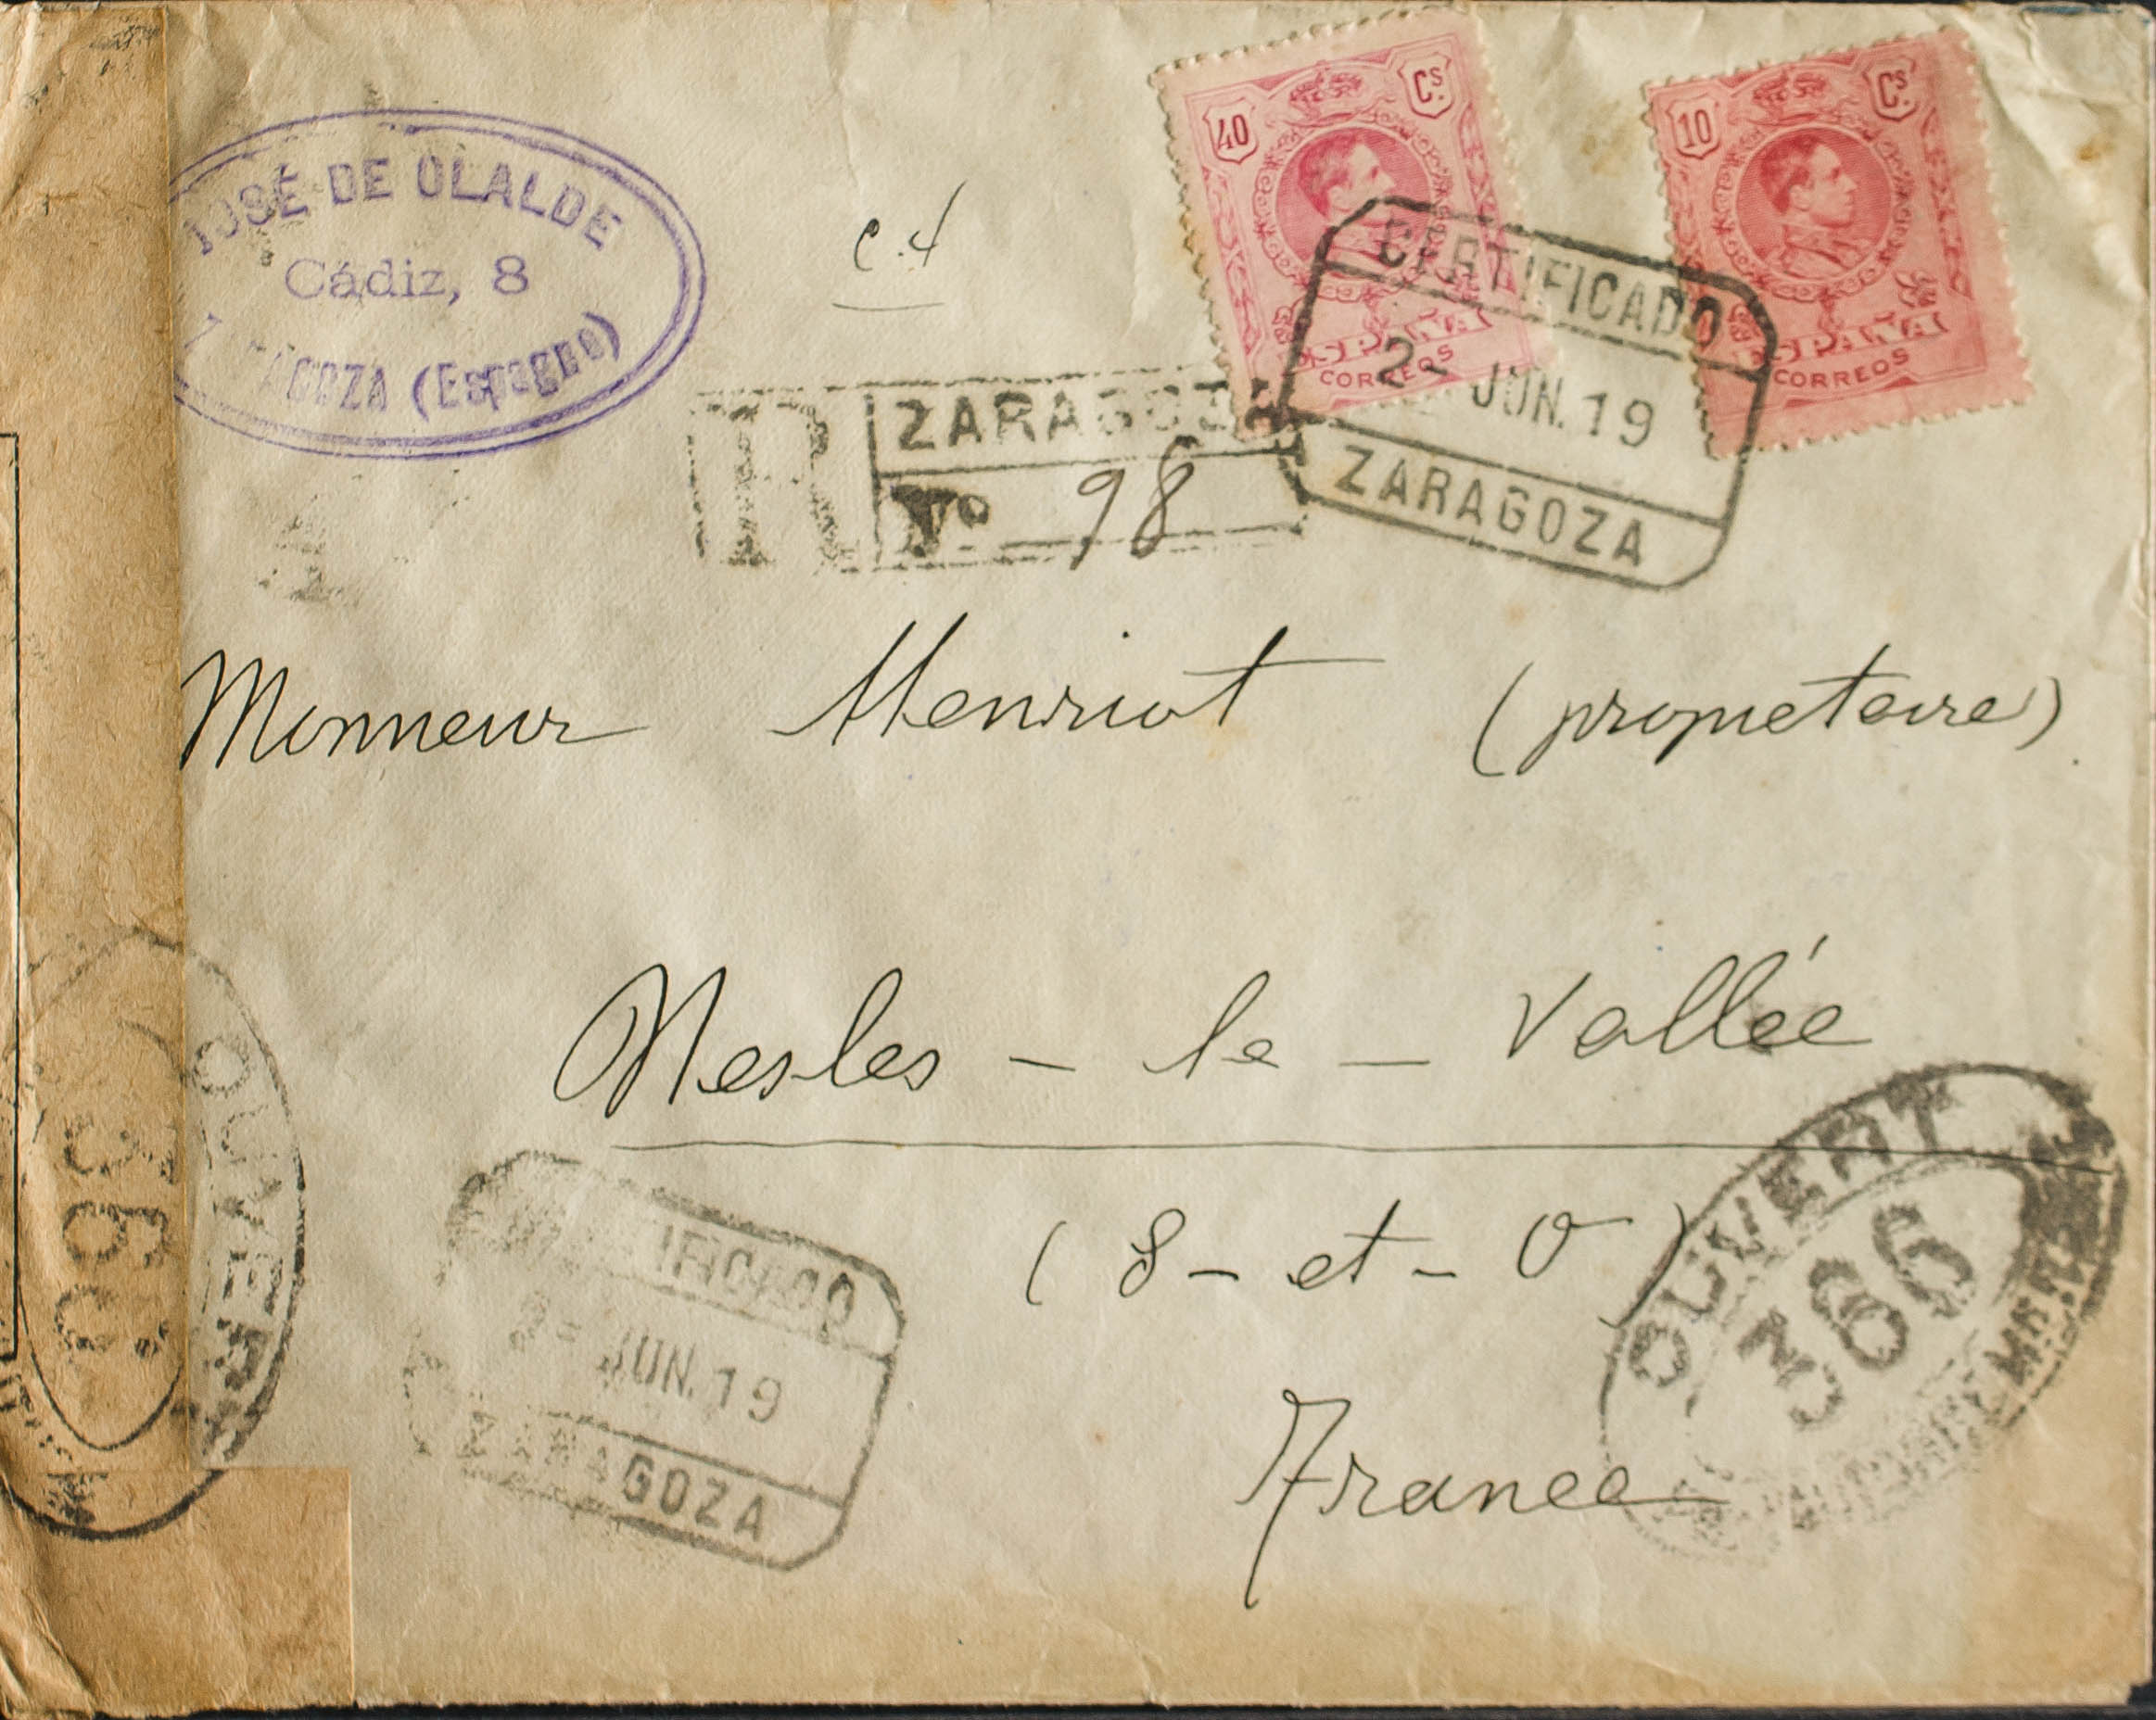 JOSÉ DE OLALDE
Cádiz, 8
ZARAGOZA (Espagne)
c.4
40 Cs.
ESPAÑA
CORREOS
10 Cs.
ESPAÑA
CORREOS
CERTIFICADO
2- JUN. 19
ZARAGOZA
R ZARAGOZA
No 98
Monsieur Henriot (propietaire)
Nesles - la - Vallée
(S - et - O)
France
CERTIFICADO
2- JUN. 19
ZARAGOZA
OUVERT
360
OUVERT
366